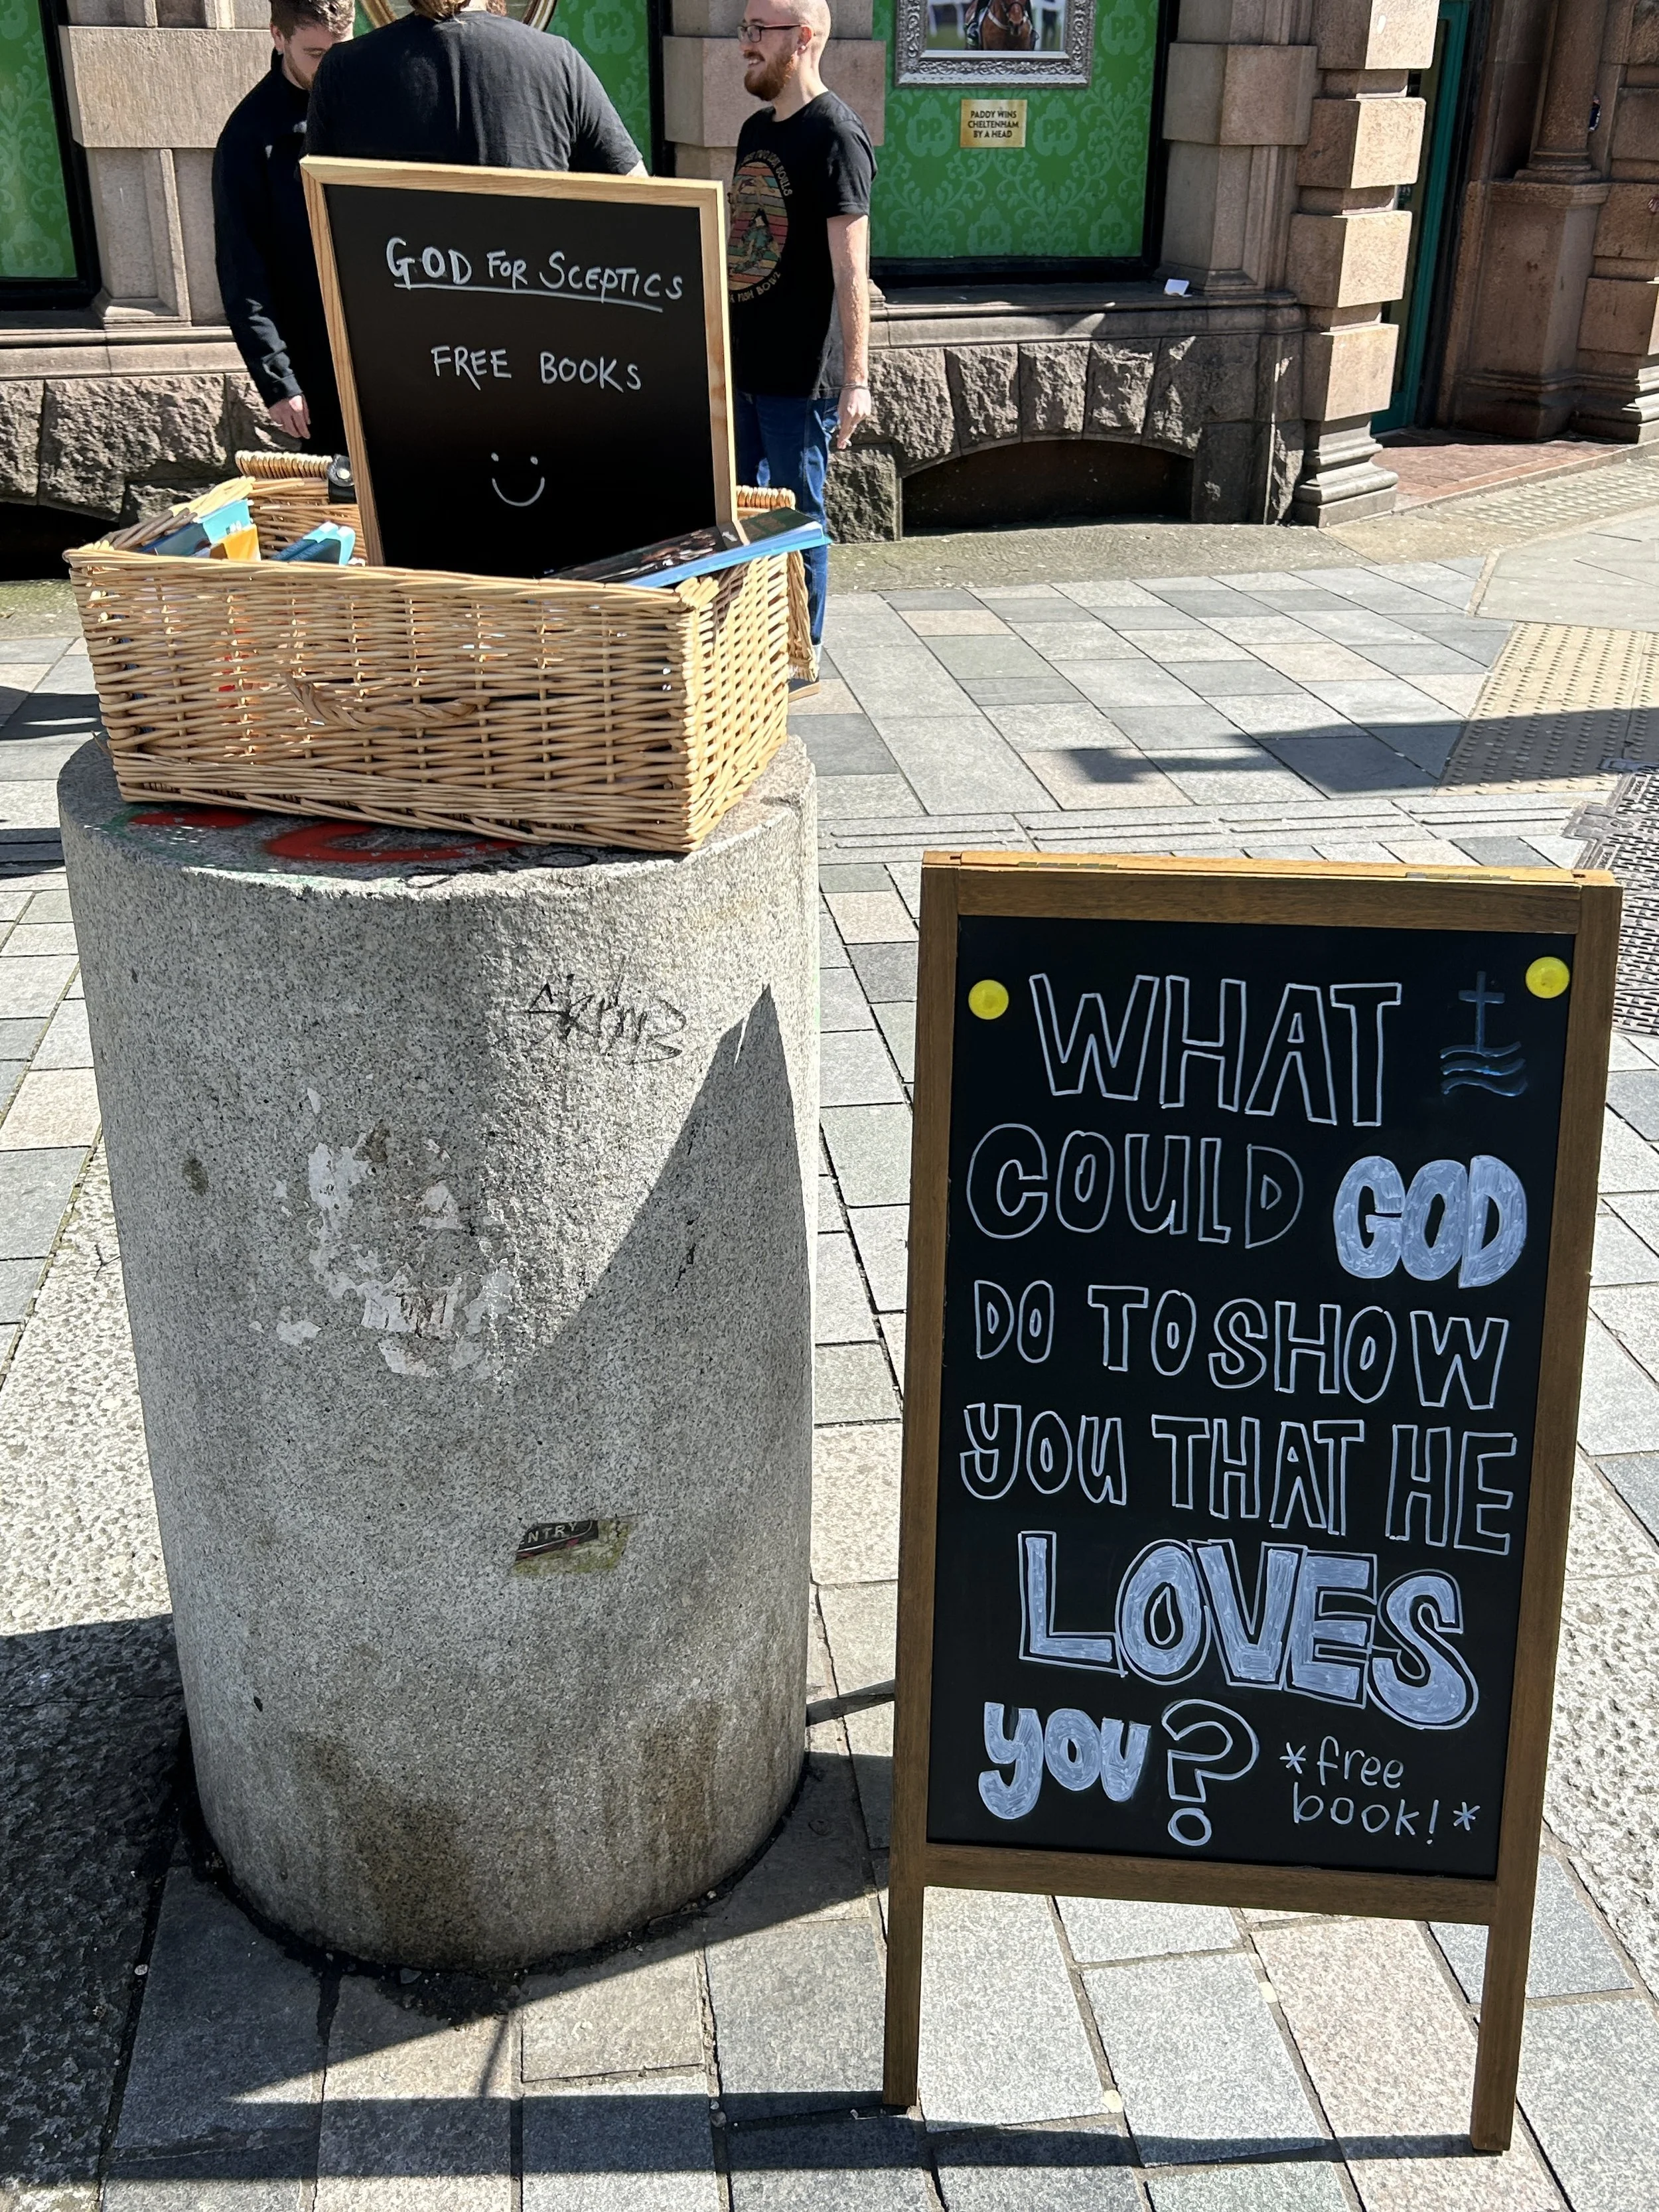 PADDY WINS
CHELTENHAM
BY A HEAD
GOD FOR SCEPTICS
FREE BOOKS
WHAT
COULD GOD
DO TO SHOW
YOU THAT HE
LOVES
YOU?
*free
book!*
NTRY